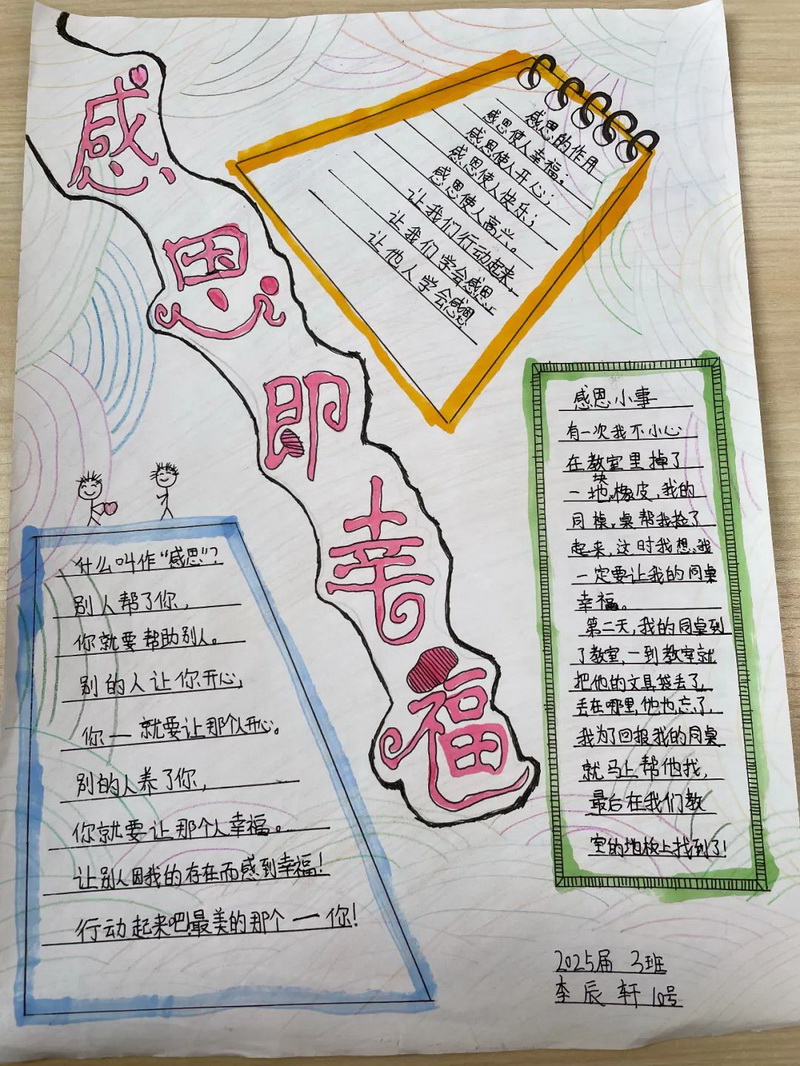 感恩即幸福
感恩的作用
感恩使人幸福;
感恩使人开心;
感恩使人快乐;
感恩使人高兴。
让我们行动起来,
让我们学会感恩,
让他人学会感恩
什么叫作“感恩”?
别人帮了你,
你就要帮助别人。
别的人让你开心,
你一就要让那个人开心。
别的人养了你,
你就要让那个人幸福。
让别人因我的存在而感到幸福!
行动起来吧!最美的那个一你!
感恩小事
有一次我不小心
在教室里掉了
一块橡皮,我的
同桌帮我捡了
起来,这时我想,我
一定要让我的同桌
幸福。
第二天,我的同桌到
了教室,一到教室就
把他的文具袋丢了,
丢在哪里,他也忘了,
我为了回报我的同桌
就马上帮他找,
最后在我们教
室的地板上找到了!
2025届 3班
李辰轩 10号